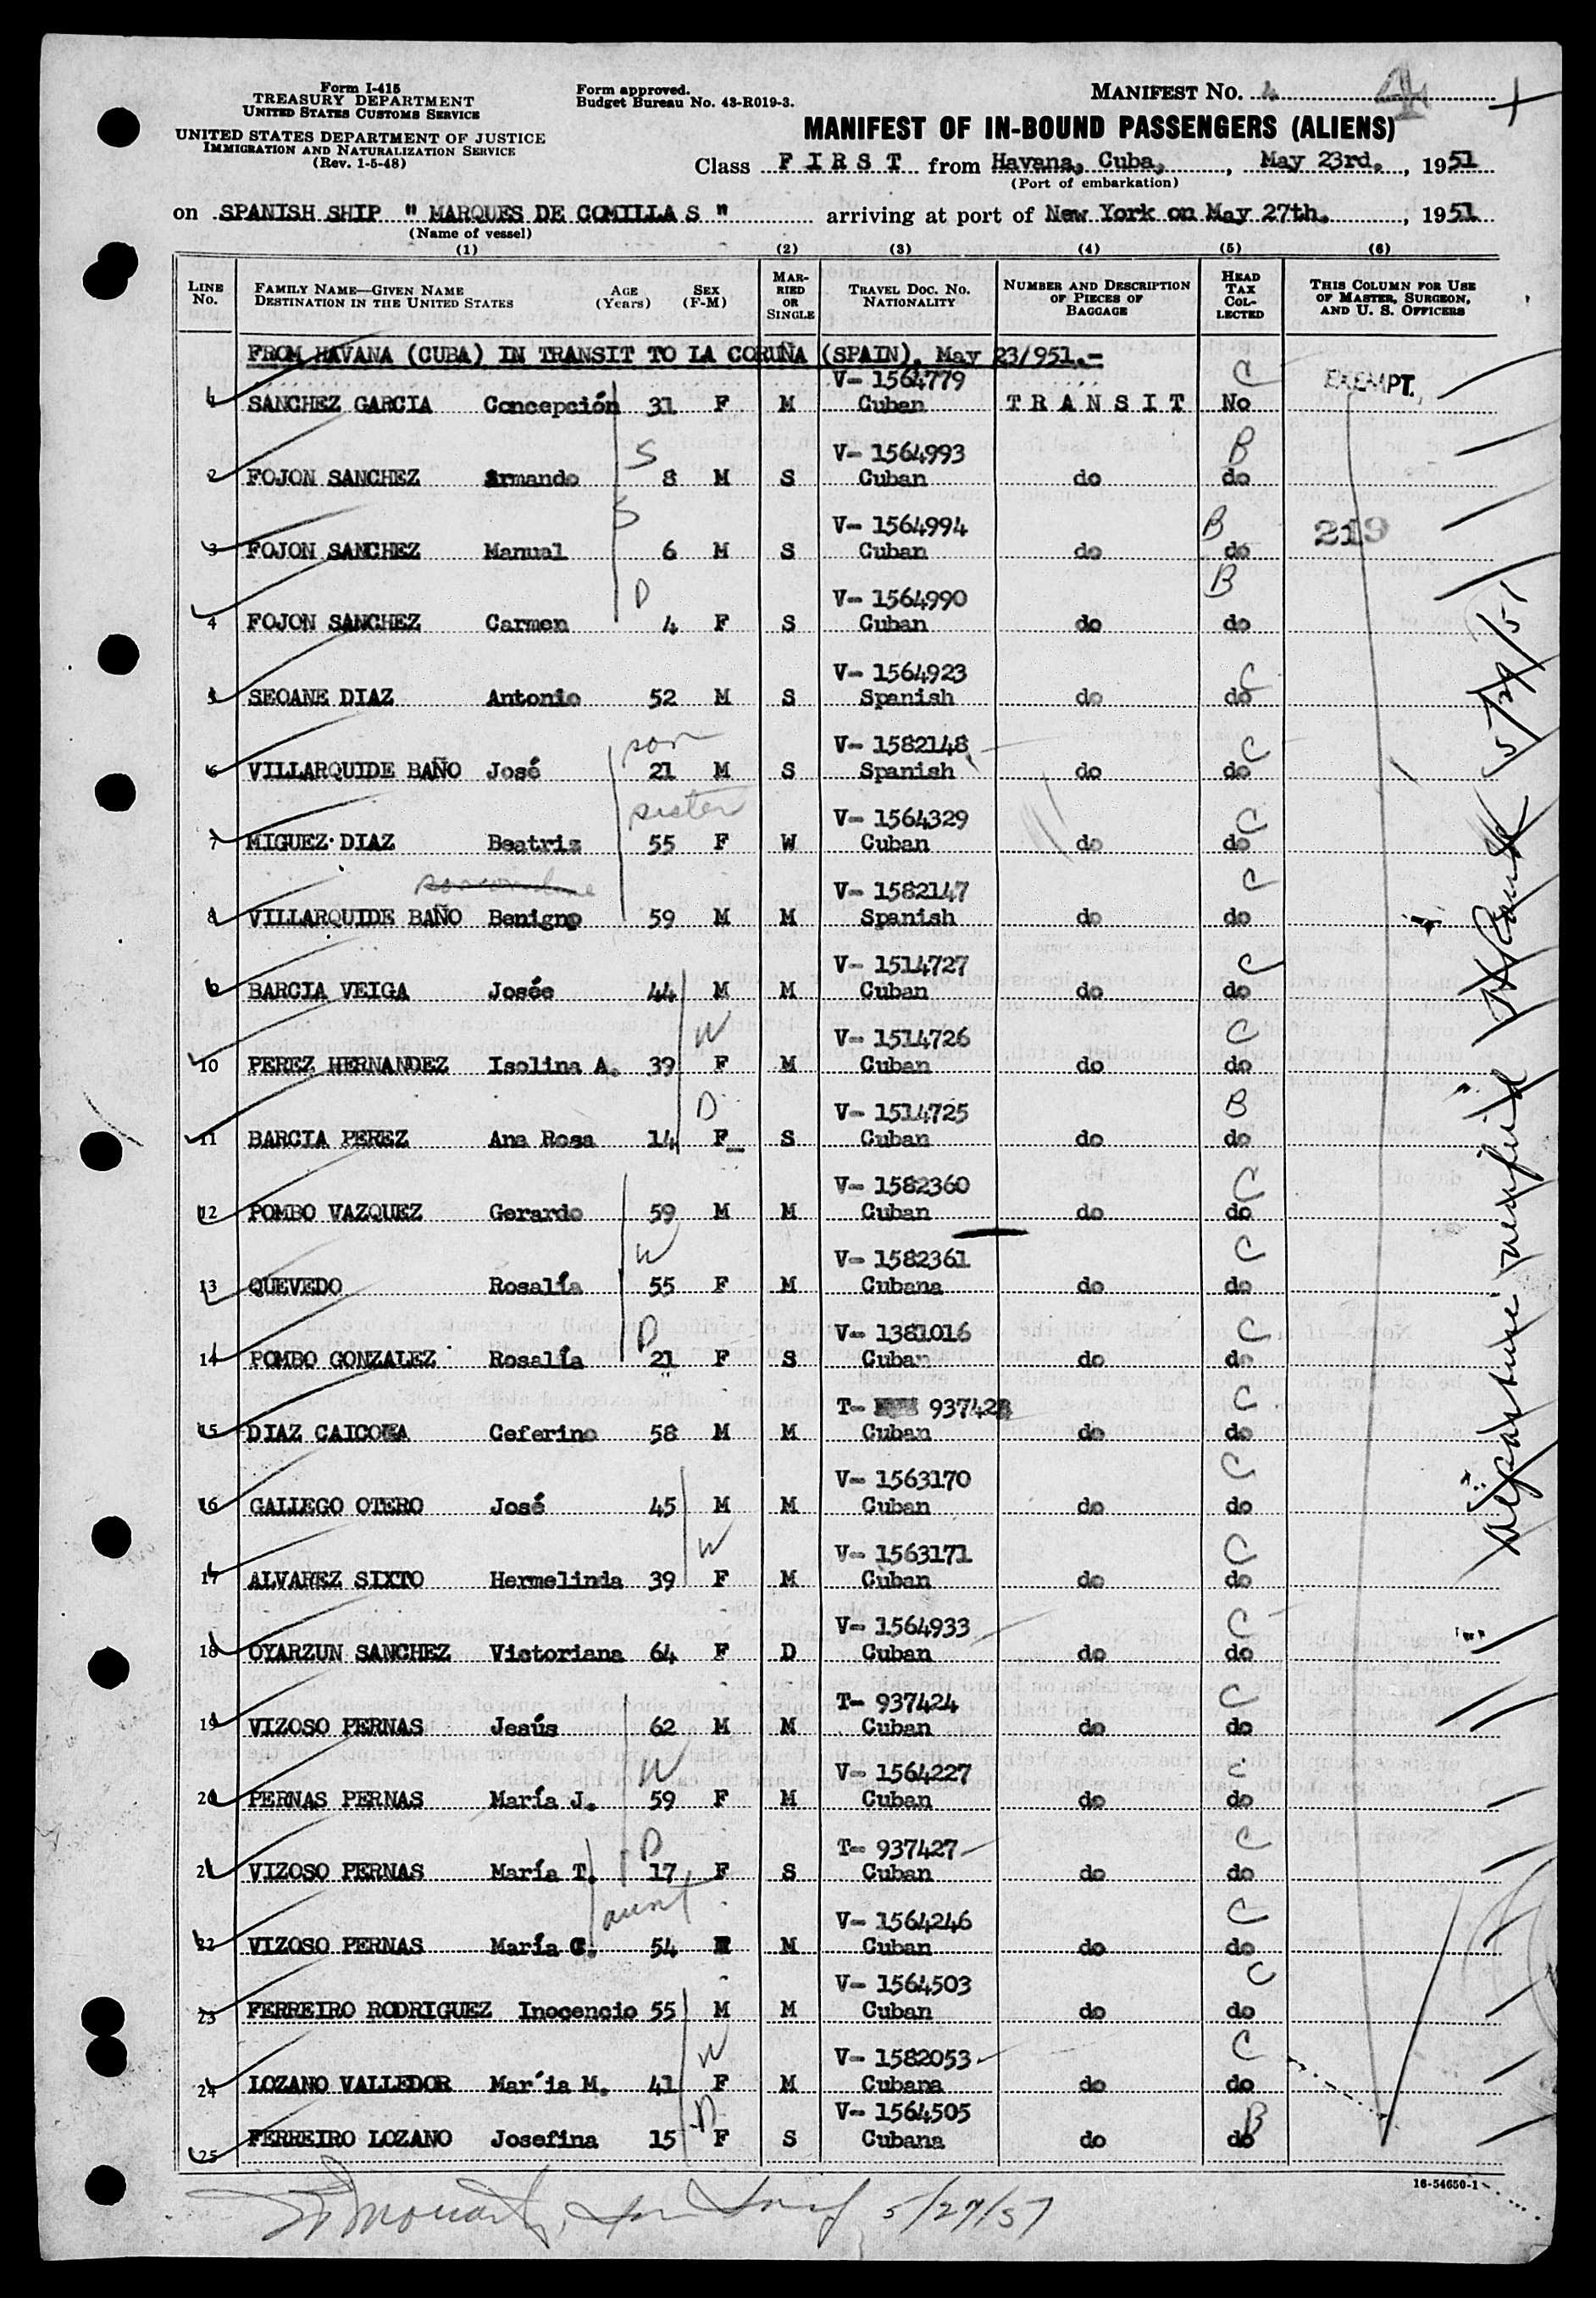 Form I-415
TREASURY DEPARTMENT
UNITED STATES CUSTOMS SERVICE
UNITED STATES DEPARTMENT OF JUSTICE
IMMIGRATION AND NATURALIZATION SERVICE
(Rev. 1-5-48)
Form approved.
Budget Bureau No. 43-R019-3.
MANIFEST No. 4 4
MANIFEST OF IN-BOUND PASSENGERS (ALIENS)
Class F I R S T from Havana, Cuba, , May 23rd. , 1951
(Port of embarkation)
on SPANISH SHIP " MARQUES DE COMILLA S " arriving at port of New York on May 27th. , 1951
(Name of vessel)
(1) (2) (3) (4) (5) (6)
LINE No. FAMILY NAME—GIVEN NAME DESTINATION IN THE UNITED STATES AGE (Years) SEX (F-M) MARRIED OR SINGLE TRAVEL DOC. NO. NATIONALITY NUMBER AND DESCRIPTION OF PIECES OF BAGGAGE HEAD TAX COLLECTED THIS COLUMN FOR USE OF MASTER, SURGEON, AND U. S. OFFICERS
FROM HAVANA (CUBA) IN TRANSIT TO LA CORUÑA (SPAIN), May 23/951.-
V- 1564779 C EXEMPT.
1 SANCHEZ GARCIA Concepción 31 F M Cuban T R A N S I T No
S V- 1564993 B
2 FOJON SANCHEZ Armando 8 M S Cuban do do
S V- 1564994 B 219
3 FOJON SANCHEZ Manual 6 M S Cuban do do
D V- 1564990 B
4 FOJON SANCHEZ Carmen 4 F S Cuban do do
V- 1564923 C
5 SEOANE DIAZ Antonio 52 M S Spanish do do
son V- 1582148 C
6 VILLARQUIDE BAÑO José 21 M S Spanish do do
sister V- 1564329 C
7 MIGUEZ DIAZ Beatriz 55 F W Cuban do do
V- 1582147 C
8 VILLARQUIDE BAÑO Benigno 59 M M Spanish do do
V- 1514727 C
9 BARCIA VEIGA Josée 44 M M Cuban do do
W V- 1514726 C
10 PEREZ HERNANDEZ Isolina A. 39 F M Cuban do do
D V- 1514725 B
11 BARCIA PEREZ Ana Rosa 14 F S Cuban do do
V- 1582360 C
12 POMBO VAZQUEZ Gerardo 59 M M Cuban do do
W V- 1582361 C
13 QUEVEDO Rosalía 55 F M Cubana do do
D V- 1381016 C
14 POMBO GONZALEZ Rosalía 21 F S Cuban do do
T- 937428 C
15 DIAZ CAICOYA Ceferino 58 M M Cuban do do
V- 1563170 C
16 GALLEGO OTERO José 45 M M Cuban do do
W V- 1563171 C
17 ALVAREZ SIXTO Hermelinda 39 F M Cuban do do
V- 1564933 C
18 OYARZUN SANCHEZ Victoriana 64 F D Cuban do do
T- 937424 C
19 VIZOSO PERNAS Jesús 62 M M Cuban do do
W V- 1564227 C
20 PERNAS PERNAS María J. 59 F M Cuban do do
D T- 937427 C
21 VIZOSO PERNAS María T. 17 F S Cuban do do
aunt V- 1564246 C
22 VIZOSO PERNAS María C. 54 M Cuban do do
V- 1564503 C
23 FERREIRO RODRIGUEZ Inocencio 55 M M Cuban do do
W V- 1582053 C
24 LOZANO VALLEDOR Mar´ia M. 41 F M Cubana do do
D V- 1564505 B
25 FERREIRO LOZANO Josefina 15 F S Cubana do do
departure verified 5/29/51
16-54650-1
5/27/51